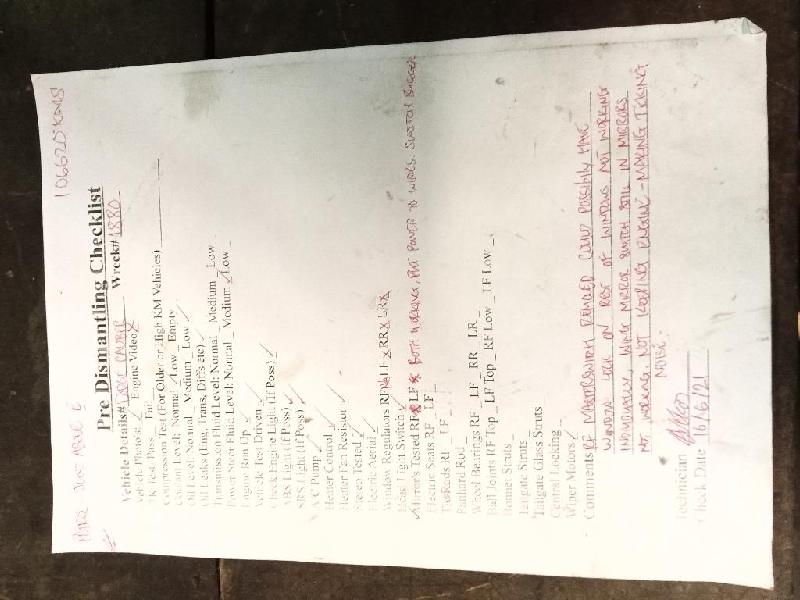 106620 KMS
Pre Dismantling Checklist
Vehicle Details# Wreck# 1880
Vehicle Photos Engine Video
Compression Test (For Older or High KM Vehicles)
Coolant Level: Normal Low Empty
Oil Level: Normal Medium Low
Oil Leaks (Eng, Trans, Diffs etc)
Transmission Fluid Level: Normal Medium Low
Power Steer Fluid Level: Normal Medium Low
Engine Run Up
Vehicle Test Driven
Check Engine Light (If Poss)
ABS Light (If Poss)
SRS Light (If Poss)
A/C Pump
Heater Control
Heater Fan Resistor
Stereo Tested
Electric Aerial
Window Regulators RF LF RR LR
Head Light Switch
Mirrors Tested RF LF BOTH WORKING, PUT POWER TO WIRES. SWITCH BUGGER
Electric Seats RF LF
TieRods RF LF
Panhard Rod
Wheel Bearings RF LF RR LR
Ball Joints RF Top LF Top RF Low LF Low
Bonnet Struts
Tailgate Struts
Tailgate Glass Struts
Central Locking
Wiper Motors
Comments IF MASTERSWITCH REMOVED COULD POSSIBLY HAVE
WINDOW LOCK ON REST OF WINDOWS NOT WORKING
INDIVIDUALLY, WING MIRROR SWITCH STILL IN MIRRORS
NOT WORKING. NOT KNOCKING ENGINE - MAKING TICKING
NOISE.
Technician
Check Date 16/6/21